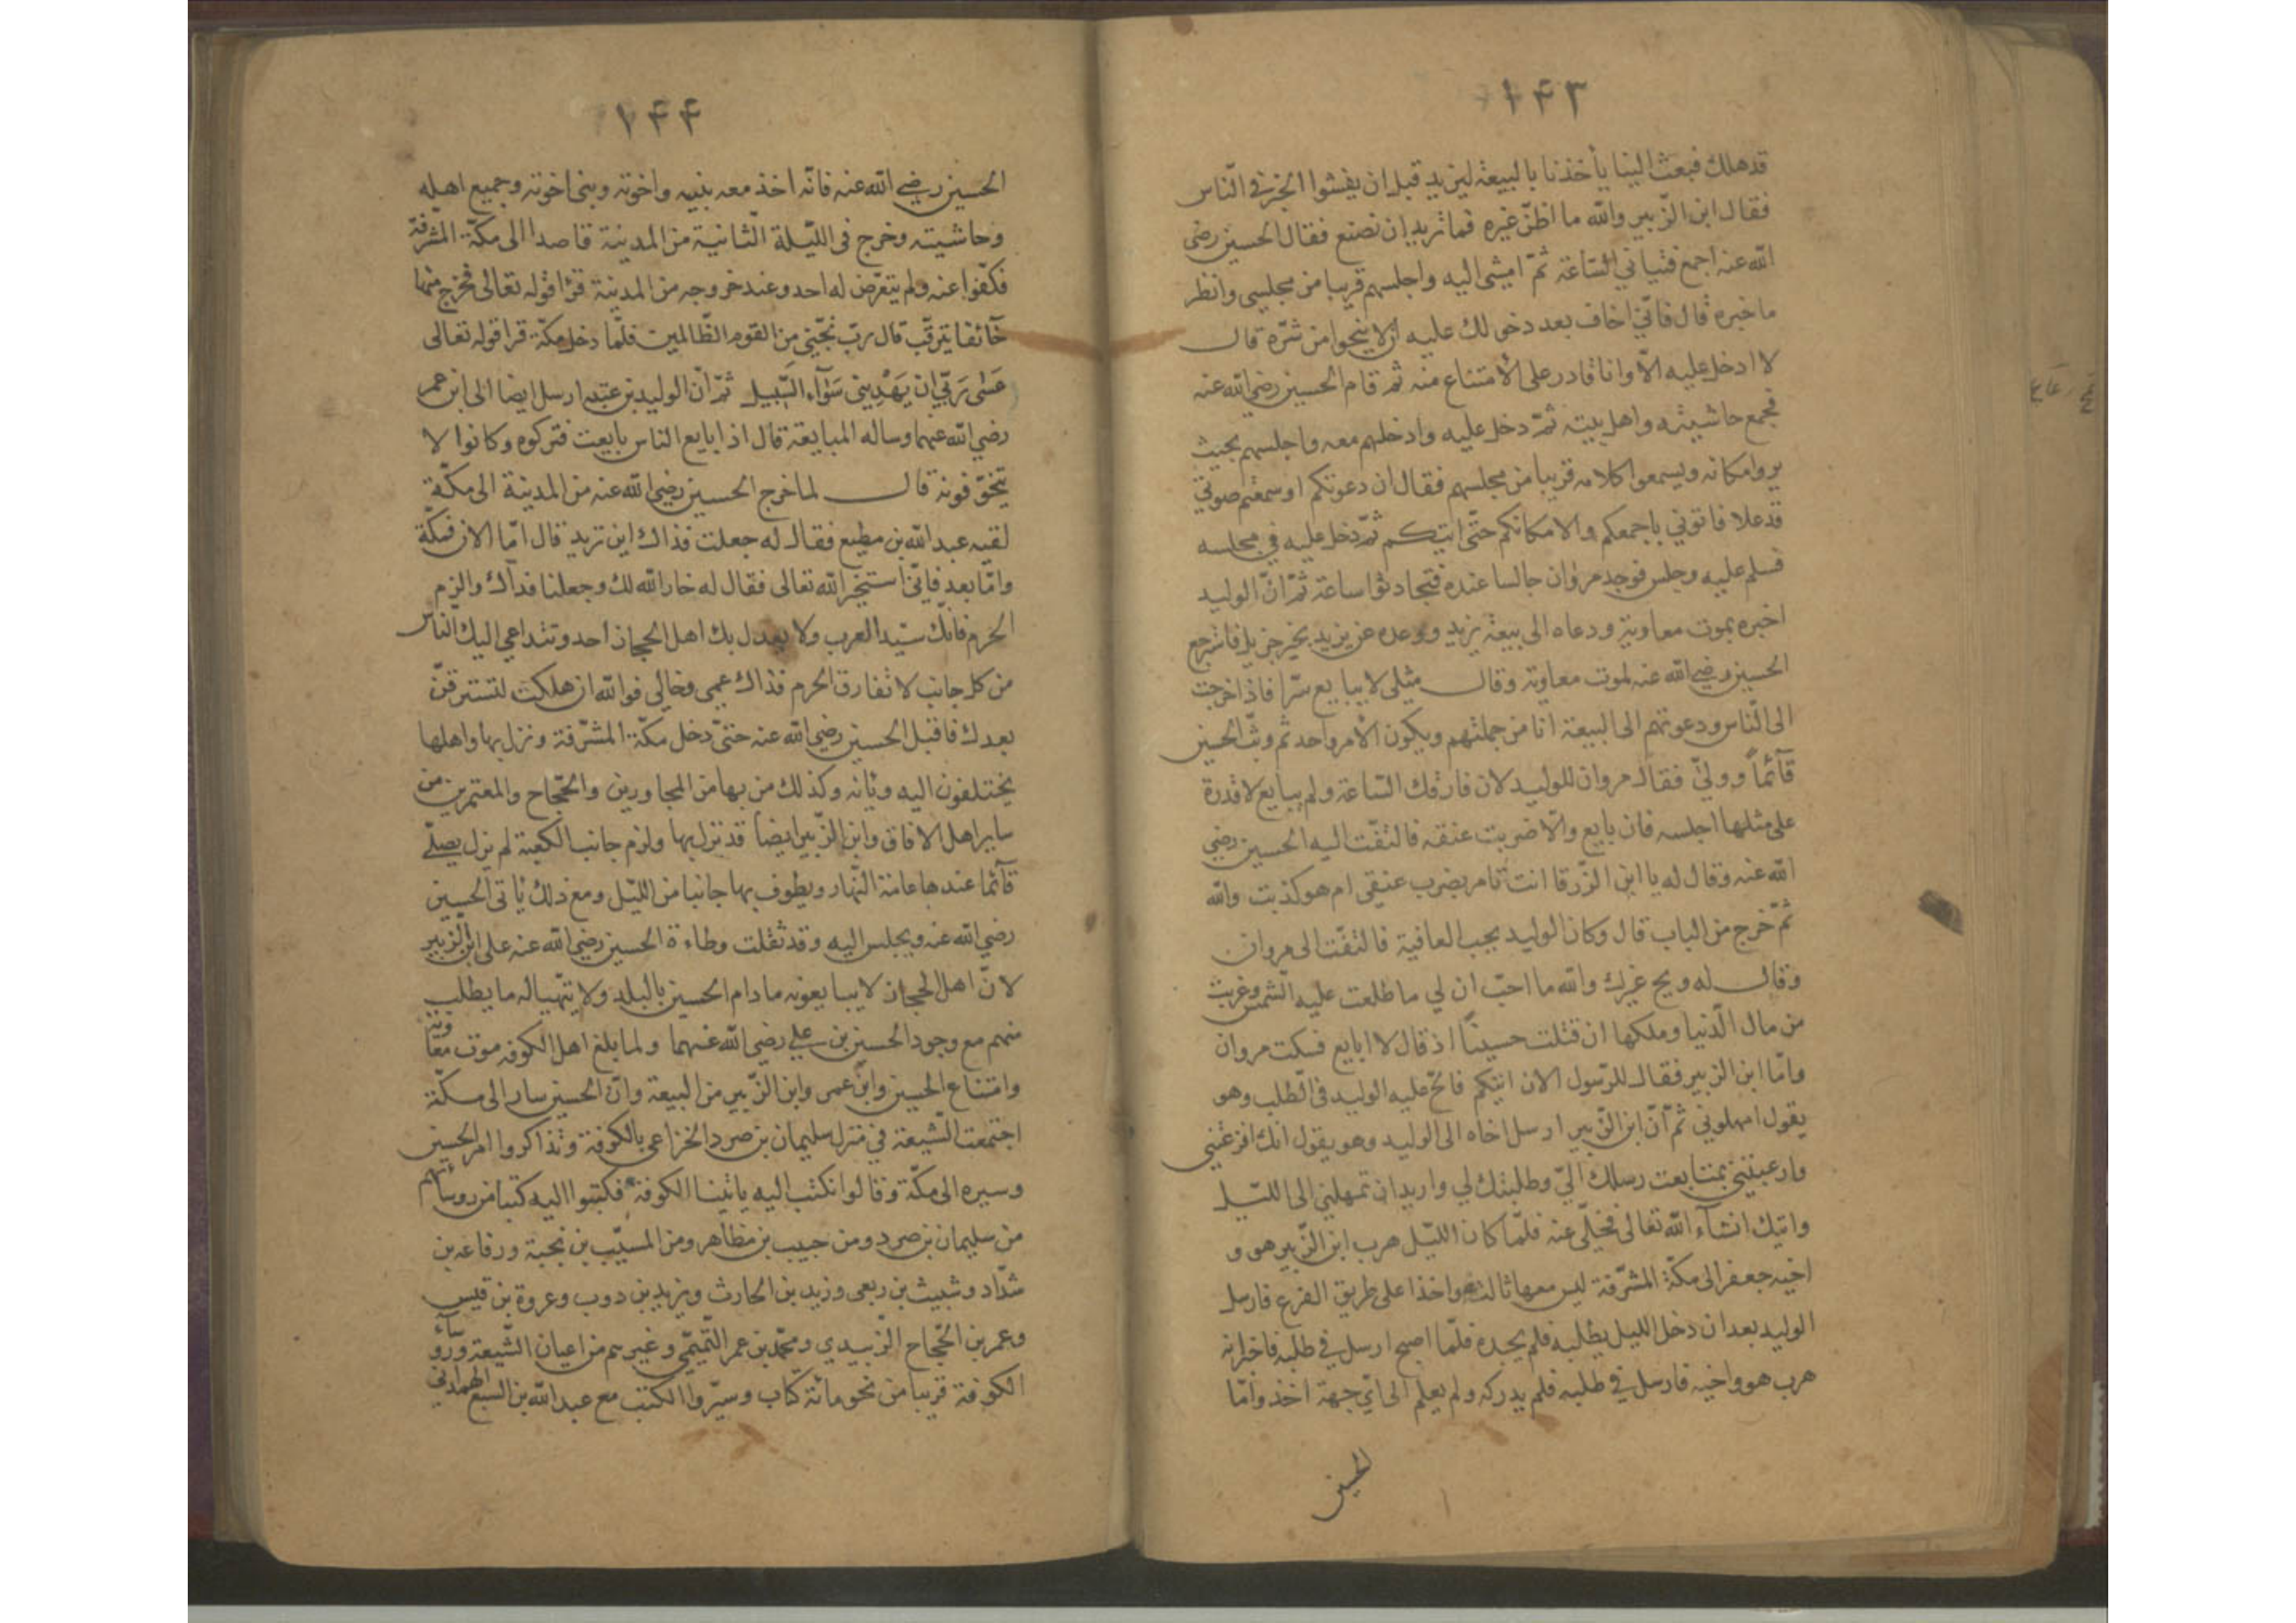 ١٤٣
قد هلك فبعث الينا يأخذنا بالبيعة ليزيد قبل ان يفشوا الخبر في النّاس
فقال ابن الزّبير والله ما اظنّ غيره فما تريد ان تصنع فقال الحسين رضى
الله عنه اجمع فتياني السّاعة ثمّ امشى اليه واجلسهم قريبا من مجلسى وانظر
ما خبره قال فانّي اخاف بعد دخولك عليه ان لا ينجوا من شرّه قال
لا ادخل عليه الّا وانا قادر على الامتناع منه ثم قام الحسين رضي الله عنه
فجمع حاشيته واهل بيته ثمّ دخل عليه وادخلهم معه واجلسهم بحيث
يروا مكانه ويسمعوا كلامه قريبا من مجلسهم فقال ان دعوتكم او سمعتم صوتي
قد علا فاتوني باجمعكم والا مكانكم حتّى اتيكم ثمّ دخل عليه في مجلسه
فسلم عليه وجلس فوجد مروان جالسا عنده فتحادثوا ساعة ثمّ انّ الوليد
اخبره بموت معاوية ودعاه الى بيعة يزيد ووعده عن يزيد بخير جزيل فاسترجع
الحسين رضي الله عنه لموت معاوية وقال مثلى لا يبايع سرّا فاذا خرجت
الى النّاس ودعوتهم الى البيعة انا من جملتهم ويكون الامر واحد ثم وثب الحسين
قآئماً وولّي فقال مروان للوليد لان فارقك السّاعة ولم يبايع لا قدرة
على مثلها اجلسه فان بايع والّا ضربت عنقه فالتفّت اليه الحسين رضي
الله عنه وقال له يا ابن الزّرقا انت تامر بضرب عنقي ام هو كذبت والله
ثمّ خرج من الباب قال وكان الوليد يحب العافية فالتفّت الى مروان
وقال له ويح غيرك والله ما احبّ ان لي ما طلعت عليه الشّمس وغربت
من مال الدّنيا وملكها ان قتلت حسيناً اذ قال لا ابايع فسكت مروان
وامّا ابن الزبير فقال للرّسول الان اتيكم فالحّ عليه الوليد في الطلب وهو
يقول امهلوني ثمّ انّ ابن الزّبير ارسل اخاه الى الوليد وهو يقول انك افزعتني
وارعبتنى بمتابعت رسلك الىّ وطلبتك لي واريد ان تمهلني الى اللّيل
واتيك انشآء الله تعالى فخلّى عنه فلمّا كان اللّيل هرب ابن الزّبير هو و
اخيه جعفر الى مكّة المشرّفة ليس معها ثالث واخذا على طريق الفرع فارسل
الوليد بعد ان دخل الليل يطلبه فلم يجده فلمّا اصبح ارسل في طلبه فاخبر انه
هرب هو واخيه فارسل في طلبه فلم يدركه ولم يعلم الى ايّ جهة اخذ وامّا
الحسين
١٤٤
الحسين رضي الله عنه فانّه اخذ معه بنيه واخوته وبنى اخوته وجميع اهله
وحاشيته وخرج فى اللّيلة الثّانية من المدينة قاصدا الى مكّة المشرّفة
فكفّوا عنه ولم يتعرّض له احد وعند خروجه من المدينة قرا قوله تعالى فخرج منها
خآئفا يترقّب قال ربّ نجّني من القوم الظّالمين فلمّا دخل مكّة قرا قوله تعالى
عَسٰى رَبّي ان يَهْدِيَنى سَوٰآء السَّبيل ثمّ انّ الوليد بن عتبه ارسل ايضا الى ابن عمر
رضي الله عنهما وساله المبايعة قال اذا بايع الناس بايعت فتركوه وكانوا لا
يتخوّفونه قال لما خرج الحسين رضي الله عنه من المدينة الى مكّة
لقيه عبد الله بن مطيع فقال له جعلت فداك اين تريد قال امّا الان فمكّة
وامّا بعد فانّى استخير الله تعالى فقال له خار الله لك وجعلنا فداك والزم
الحرم فانّك سيّد العرب ولا يعدل بك اهل الحجاز احد وتتداعي اليك النّاس
من كل جانب لا تفارق الحرم فداك عمى وخالي فوالله ان هلكت لتسترقنّ
بعدك فاقبل الحسين رضي الله عنه حتىّ دخل مكّة المشرّفة ونزل بها واهلها
يختلفون اليه وياته وكذلك من بها من المجاورين والحجّاج والمعتمرين من
ساير اهل الافاق وابن الزّبير ايضا قد نزل بها ولزم جانب الكعبة لم يزل يصلّي
قآئما عندها عامة النّهار ويطوف بها جانبا من اللّيل ومع ذلك ياتى الحسين
رضي الله عنه ويجلس اليه وقد ثقلت وطاءة الحسين رضي الله عنه على ابن الزّبير
لانّ اهل الحجاز لا يبايعونه ما دام الحسين بالبلد ولا يتهيّا له ما يطلب
منهم مع وجود الحسين بن علي رضي الله عنهما ولما بلغ اهل الكوفه موت معاوية
وامتناع الحسين وابن عمر وابن الزّبير من البيعة وانّ الحسين سار الى مكّة
اجتمعت الشّيعة في منزل سليمان بن صرد الخزاعي بالكوفة وتذاكروا امر الحسين
وسيره الى مكّة وقالوا نكتب اليه ياتينا الكوفة فكتبوا اليه كتبا من روسآئهم
من سليمان بن صرد ومن حبيب بن مظاهر ومن المسيّب بن نجبة ورفاعه بن
شدّاد وشبيث بن ربعى وزيد بن الحارث ويزيد بن دوب وعروة بن قيس
وعمر بن الحجّاج الزّبيدي ومحمّد بن عمر التّميمّي وغيرهم من اعيان الشّيعة ورؤسآء
الكوفة قريبا من نحو مائة كتاب وسيّروا الكتب مع عبد الله بن السبع الهمدانى